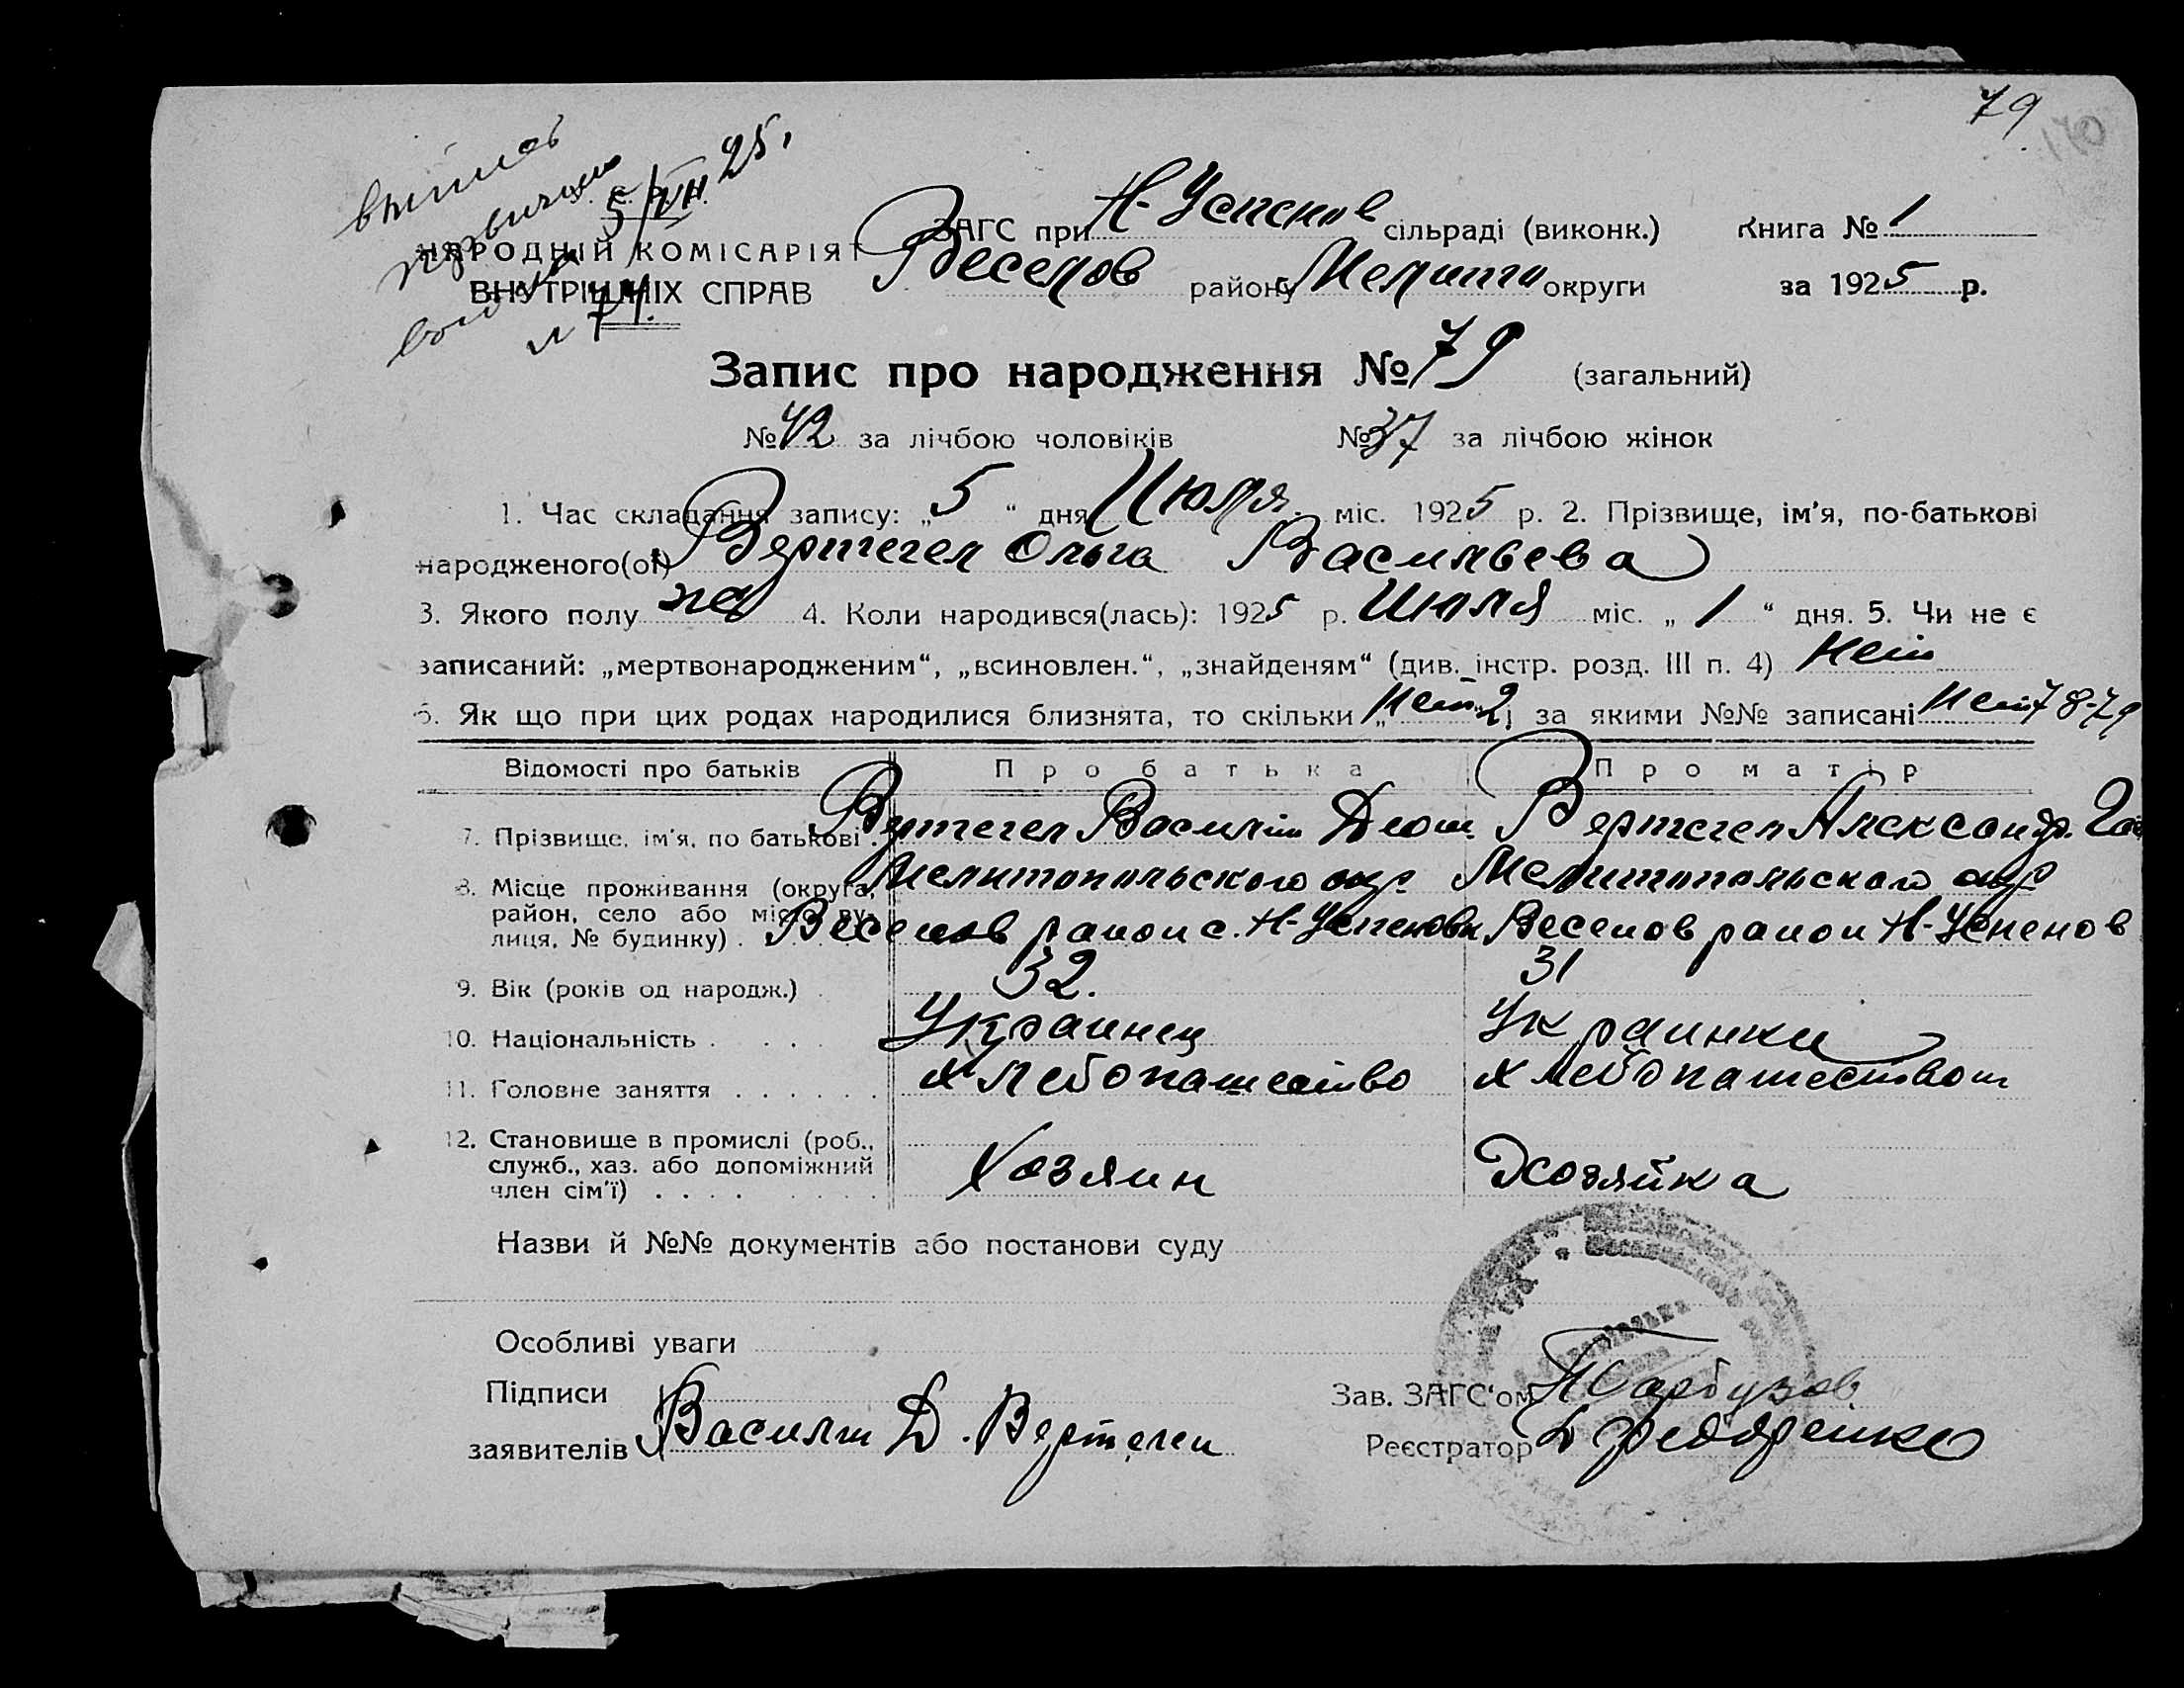 79
170
выпись
5/VII 25.
ЗАГС при Н-Успенов сільраді (виконк.) Книга № 1
НАРОДНІЙ КОМІСАРІЯТ
Веселов району Мелито округи за 1925 р.
ВНУТРІШНІХ СПРАВ
Запис про народження № 79 (загальний)
№ 42 за лічбою чоловіків № 37 за лічбою жінок
1. Час складання запису: „5“ дня Июля міс. 1925 р. 2. Прізвище, ім'я, по-батькові
народженого(ої) Вертегел Ольга Васильева
3. Якого полу же 4. Коли народився(лась): 1925 р. Июля міс. „1“ дня. 5. Чи не є
записаний: „мертвонародженим“, „всиновлен.“, „знайденям“ (див. інстр. розд. III п. 4) Нет
6. Як що при цих родах народилися близнята, то скільки „Нет 2“, за якими №№ записані Нет 78-79
Відомості про батьків Про батька Про матір
7. Прізвище, ім'я, по батькові . Вертегел Василий Деом. Вертегел Александр.
8. Місце проживання (округа, Мелитопольского окр. Мелитопольского окр
район, село або місто, ву-
лиця, № будинку) . Веселов район с. Н-Успеновк Веселов район Н-Успенов
9. Вік (років од народж.) . 32. 31
10. Національність . . . . Украинец Украинка
11. Головне заняття . . . . . . Хлебопашество Хлебопашеством
12. Становище в промислі (роб.,
служб., хаз. або допоміжний Хозяин Хозяйка
член сім'ї) . . . .
Назви й №№ документів або постанови суду
Особливі уваги
Підписи Зав. ЗАГС'ом Гарбузов
заявителів Василий Д. Вертегел Реєстратор